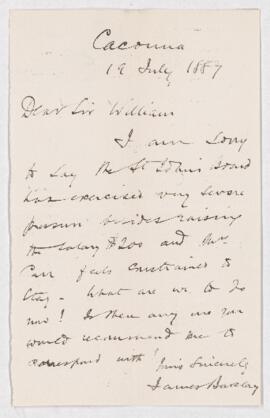 Cacouna
19 July 1887
Dear Sir William
I am sorry
to say the St John's Board
has exercised very severe
pressure besides raising
the salary $200 and Mr
Carr feels constrained to
stay. What are we to do
now? Is there any one you
would recommend me to
correspond with?
Yours Sincerely
James Barclay